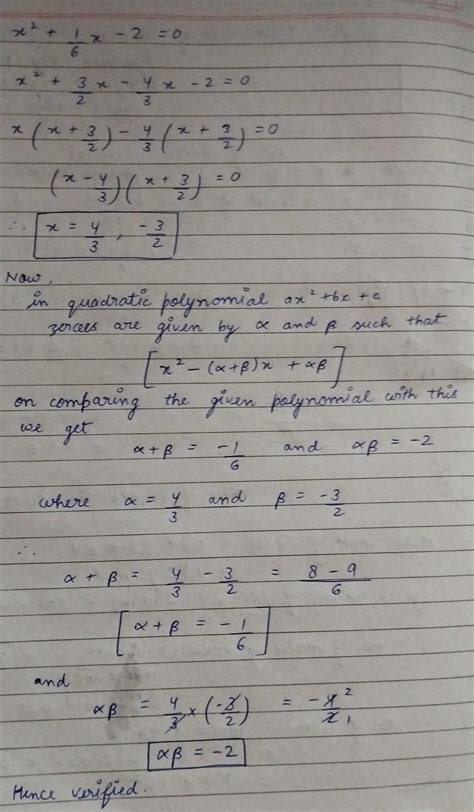 x² + 1/6 x - 2 = 0
x² + 3/2 x - 4/3 x - 2 = 0
x (x + 3/2) - 4/3 (x + 3/2) = 0
(x - 4/3) (x + 3/2) = 0
∴ x = 4/3 , -3/2
Now,
in quadratic polynomial ax² + bx + c
zeroes are given by α and β such that
[x² - (α+β)x + αβ]
on comparing the given polynomial with this
we get
α + β = -1/6 and αβ = -2
where α = 4/3 and β = -3/2
∴
α + β = 4/3 - 3/2 = 8 - 9/6
[α + β = -1/6]
and
αβ = 4/3 × (-3/2) = -4/2 2 1
αβ = -2
Hence verified.